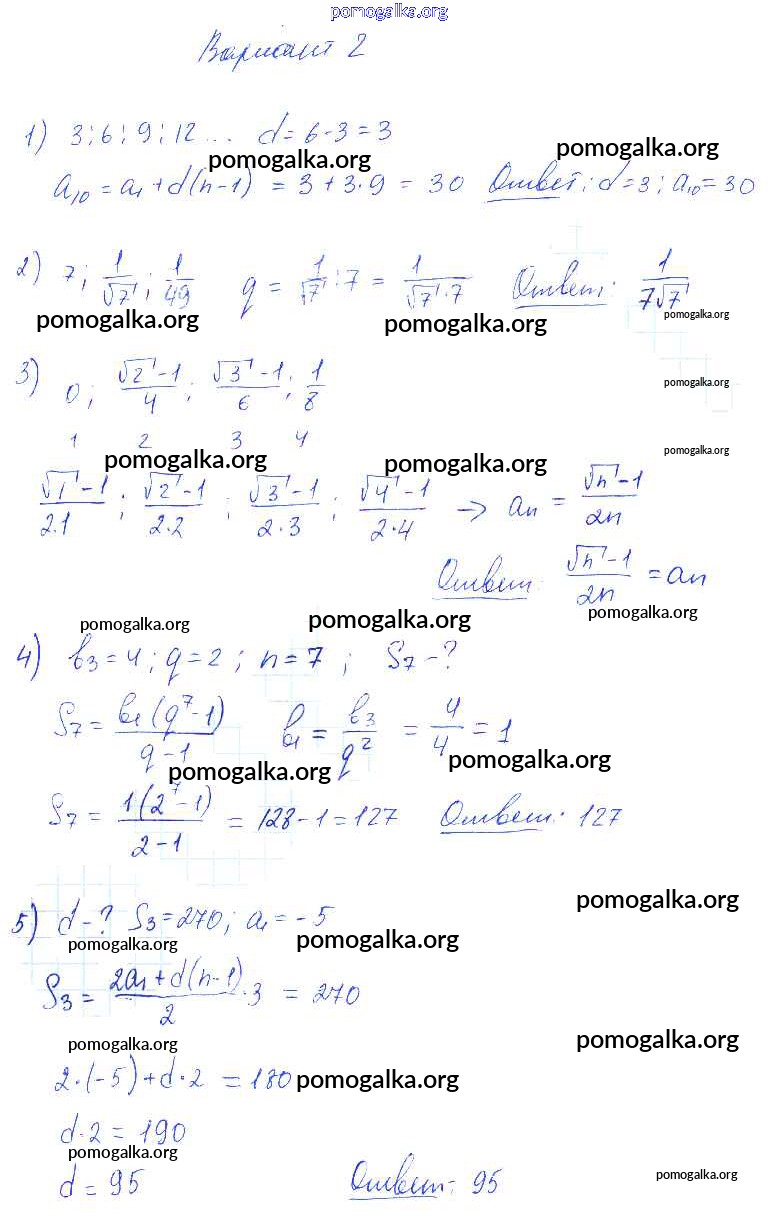 pomogalka.org
Вариант 2
1) 3; 6; 9; 12 ... d = 6-3 = 3
pomogalka.org pomogalka.org
a₁₀ = a₁ + d(n-1) = 3 + 3·9 = 30 Ответ: d=3; a₁₀=30
2) 7; 1/√7; 1/49 q = 1/√7 : 7 = 1/(√7·7) Ответ: 1/(7√7)
pomogalka.org pomogalka.org pomogalka.org
3) 0; (√2-1)/4; (√3-1)/6; 1/8
pomogalka.org
1 2 3 4
pomogalka.org pomogalka.org pomogalka.org
(√1-1)/(2·1); (√2-1)/(2·2); (√3-1)/(2·3); (√4-1)/(2·4) → aₙ = (√n-1)/(2n)
Ответ: (√n-1)/(2n) = aₙ
pomogalka.org pomogalka.org pomogalka.org
4) b₃=4; q=2; n=7; S₇-?
S₇ = b₁(q⁷-1)/(q-1) b₁ = b₃/q² = 4/4 = 1
pomogalka.org pomogalka.org
S₇ = 1(2⁷-1)/(2-1) = 128-1 = 127 Ответ: 127
pomogalka.org
5) d-? S₃=270; a₁=-5
pomogalka.org pomogalka.org
S₃ = (2a₁+d(n-1))/2 · 3 = 270
pomogalka.org pomogalka.org
2·(-5)+d·2 = 180
pomogalka.org
d·2 = 190
pomogalka.org
d = 95 Ответ: 95
pomogalka.org